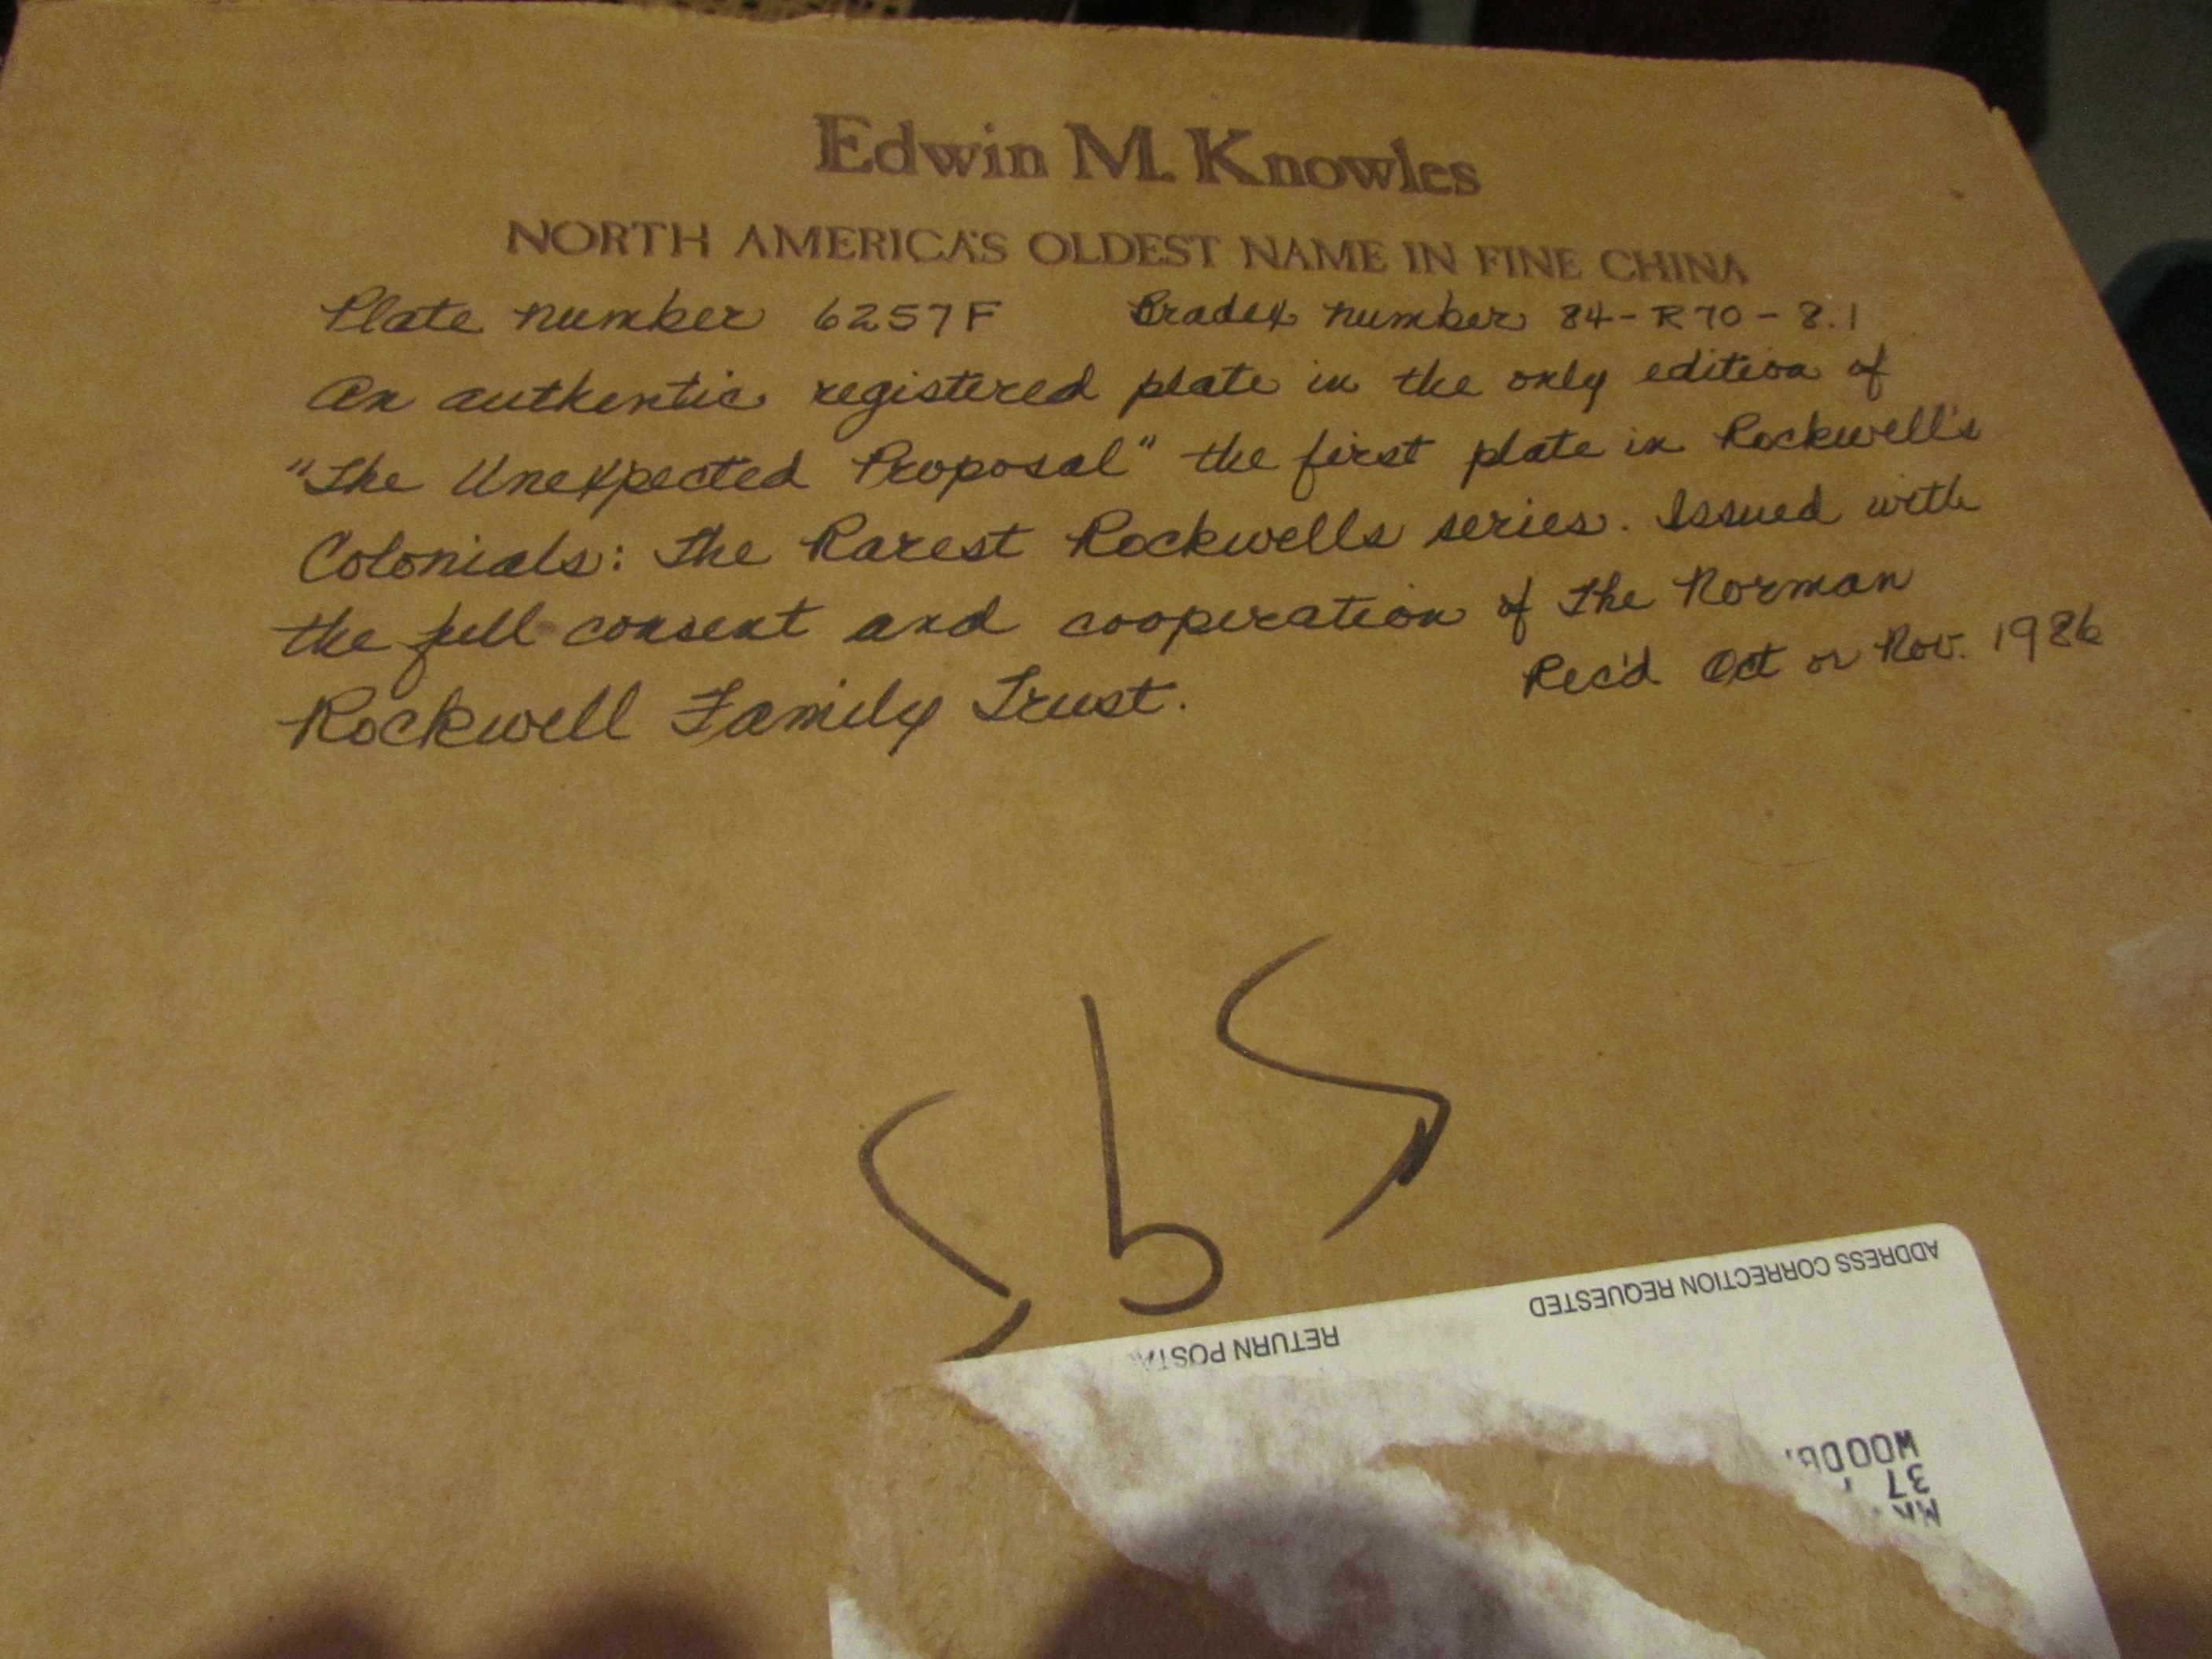 Edwin M. Knowles
NORTH AMERICA'S OLDEST NAME IN FINE CHINA
Plate number 6257F Bradex number 84-R70-8.1
An authentic registered plate in the only edition of
"The Unexpected Proposal" the first plate in Rockwell's
Colonials: The Rarest Rockwells series. Issued with
the full consent and cooperation of The Norman
Rockwell Family Trust.
Rec'd Oct or Nov. 1986
ADDRESS CORRECTION REQUESTED
RETURN
37